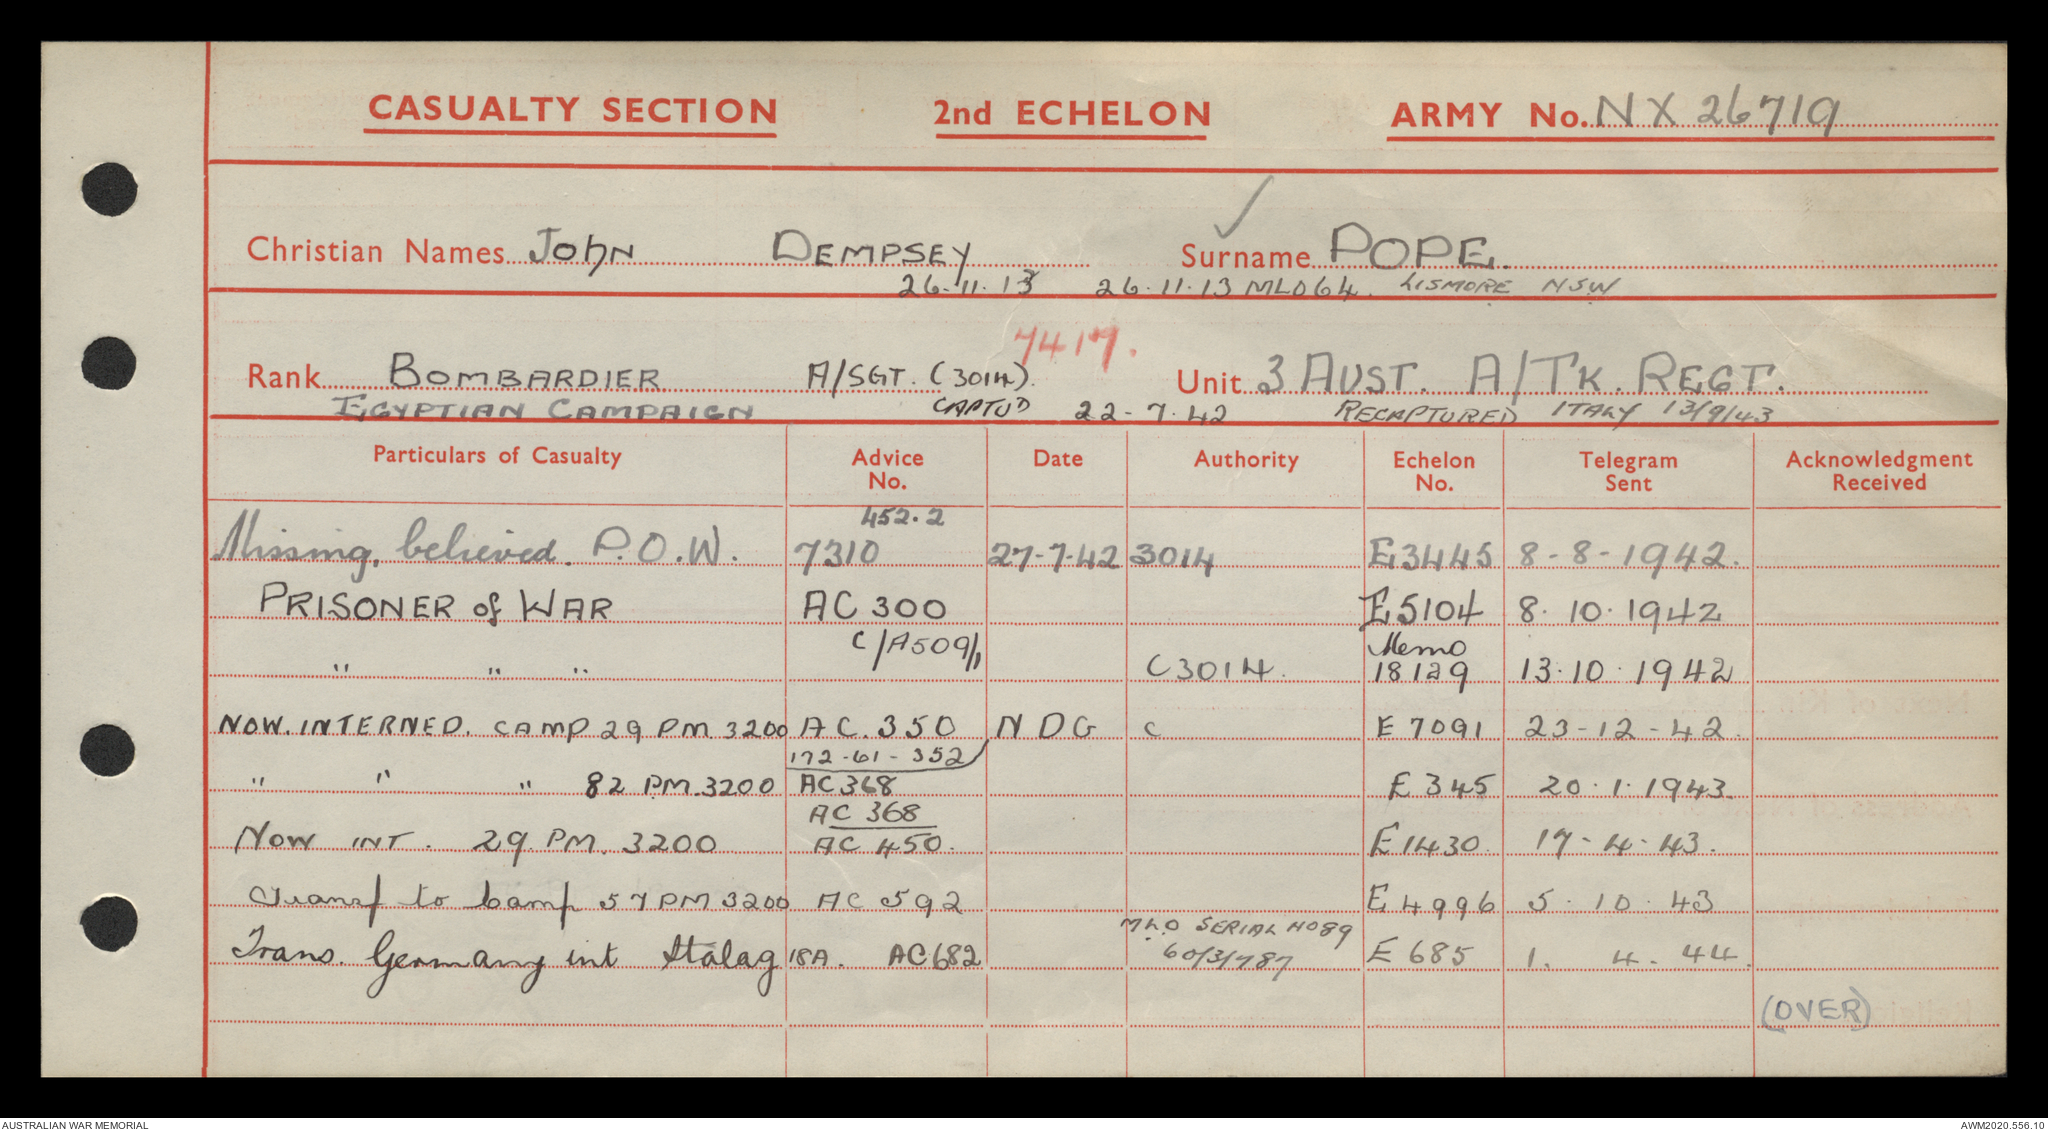 CASUALTY SECTION 2nd ECHELON ARMY No. NX 26719
Christian Names John DEMPSEY Surname POPE
26.11.13 26.11.13 MLO64. LISMORE NSW
7417.
Rank BOMBARDIER A/SGT. (3014). Unit 3 AUST. A/TK. REGT.
EGYPTIAN CAMPAIGN CAPTU'D 22-7-42 RECAPTURED ITALY 13/9/43
Particulars of Casualty Advice No. Date Authority Echelon No. Telegram Sent Acknowledgment Received
452.2
Missing, believed. P.O.W. 7310 27-7-42 3014 E3445 8-8-1942.
PRISONER of WAR AC 300 E5104 8.10.1942
C/A509/1 Memo
" " " C3014. 18129 13.10.1942
NOW. INTERNED. CAMP 29 PM 3200 AC. 350 NDG C E 7091 23-12-42.
172-61-352
" " " 82 PM.3200 AC368 E 345 20.1.1943.
AC 368
NOW INT. 29 PM. 3200 AC 450. E1430. 17-4-43.
Transf to Camp 57 PM 3200 AC 592 E4996 5.10.43
MLO SERIAL NO89
Trans. Germany int Stalag 18A. AC682 60/3/787 E 685 1. 4. 44.
(OVER)
AUSTRALIAN WAR MEMORIAL AWM2020.556.10